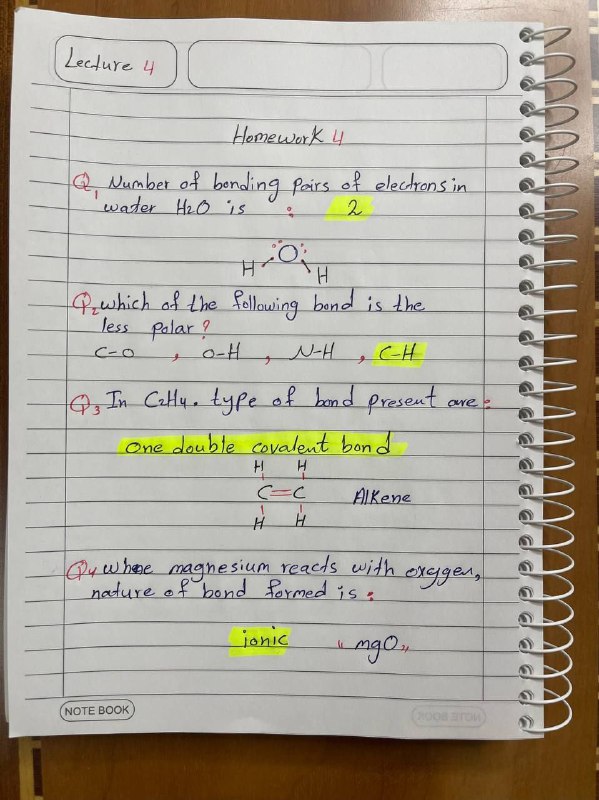 Lecture 4
Homework 4
Q1 Number of bonding pairs of electrons in
water H2O is : 2
O
H H
Q2 which of the following bond is the
less polar?
C-O , O-H , N-H , C-H
Q3 In C2H4. type of bond present are:
One double covalent bond
H H
C=C Alkene
H H
Q4 whoe magnesium reacts with oxygen,
nature of bond formed is:
ionic "mgO"
NOTE BOOK